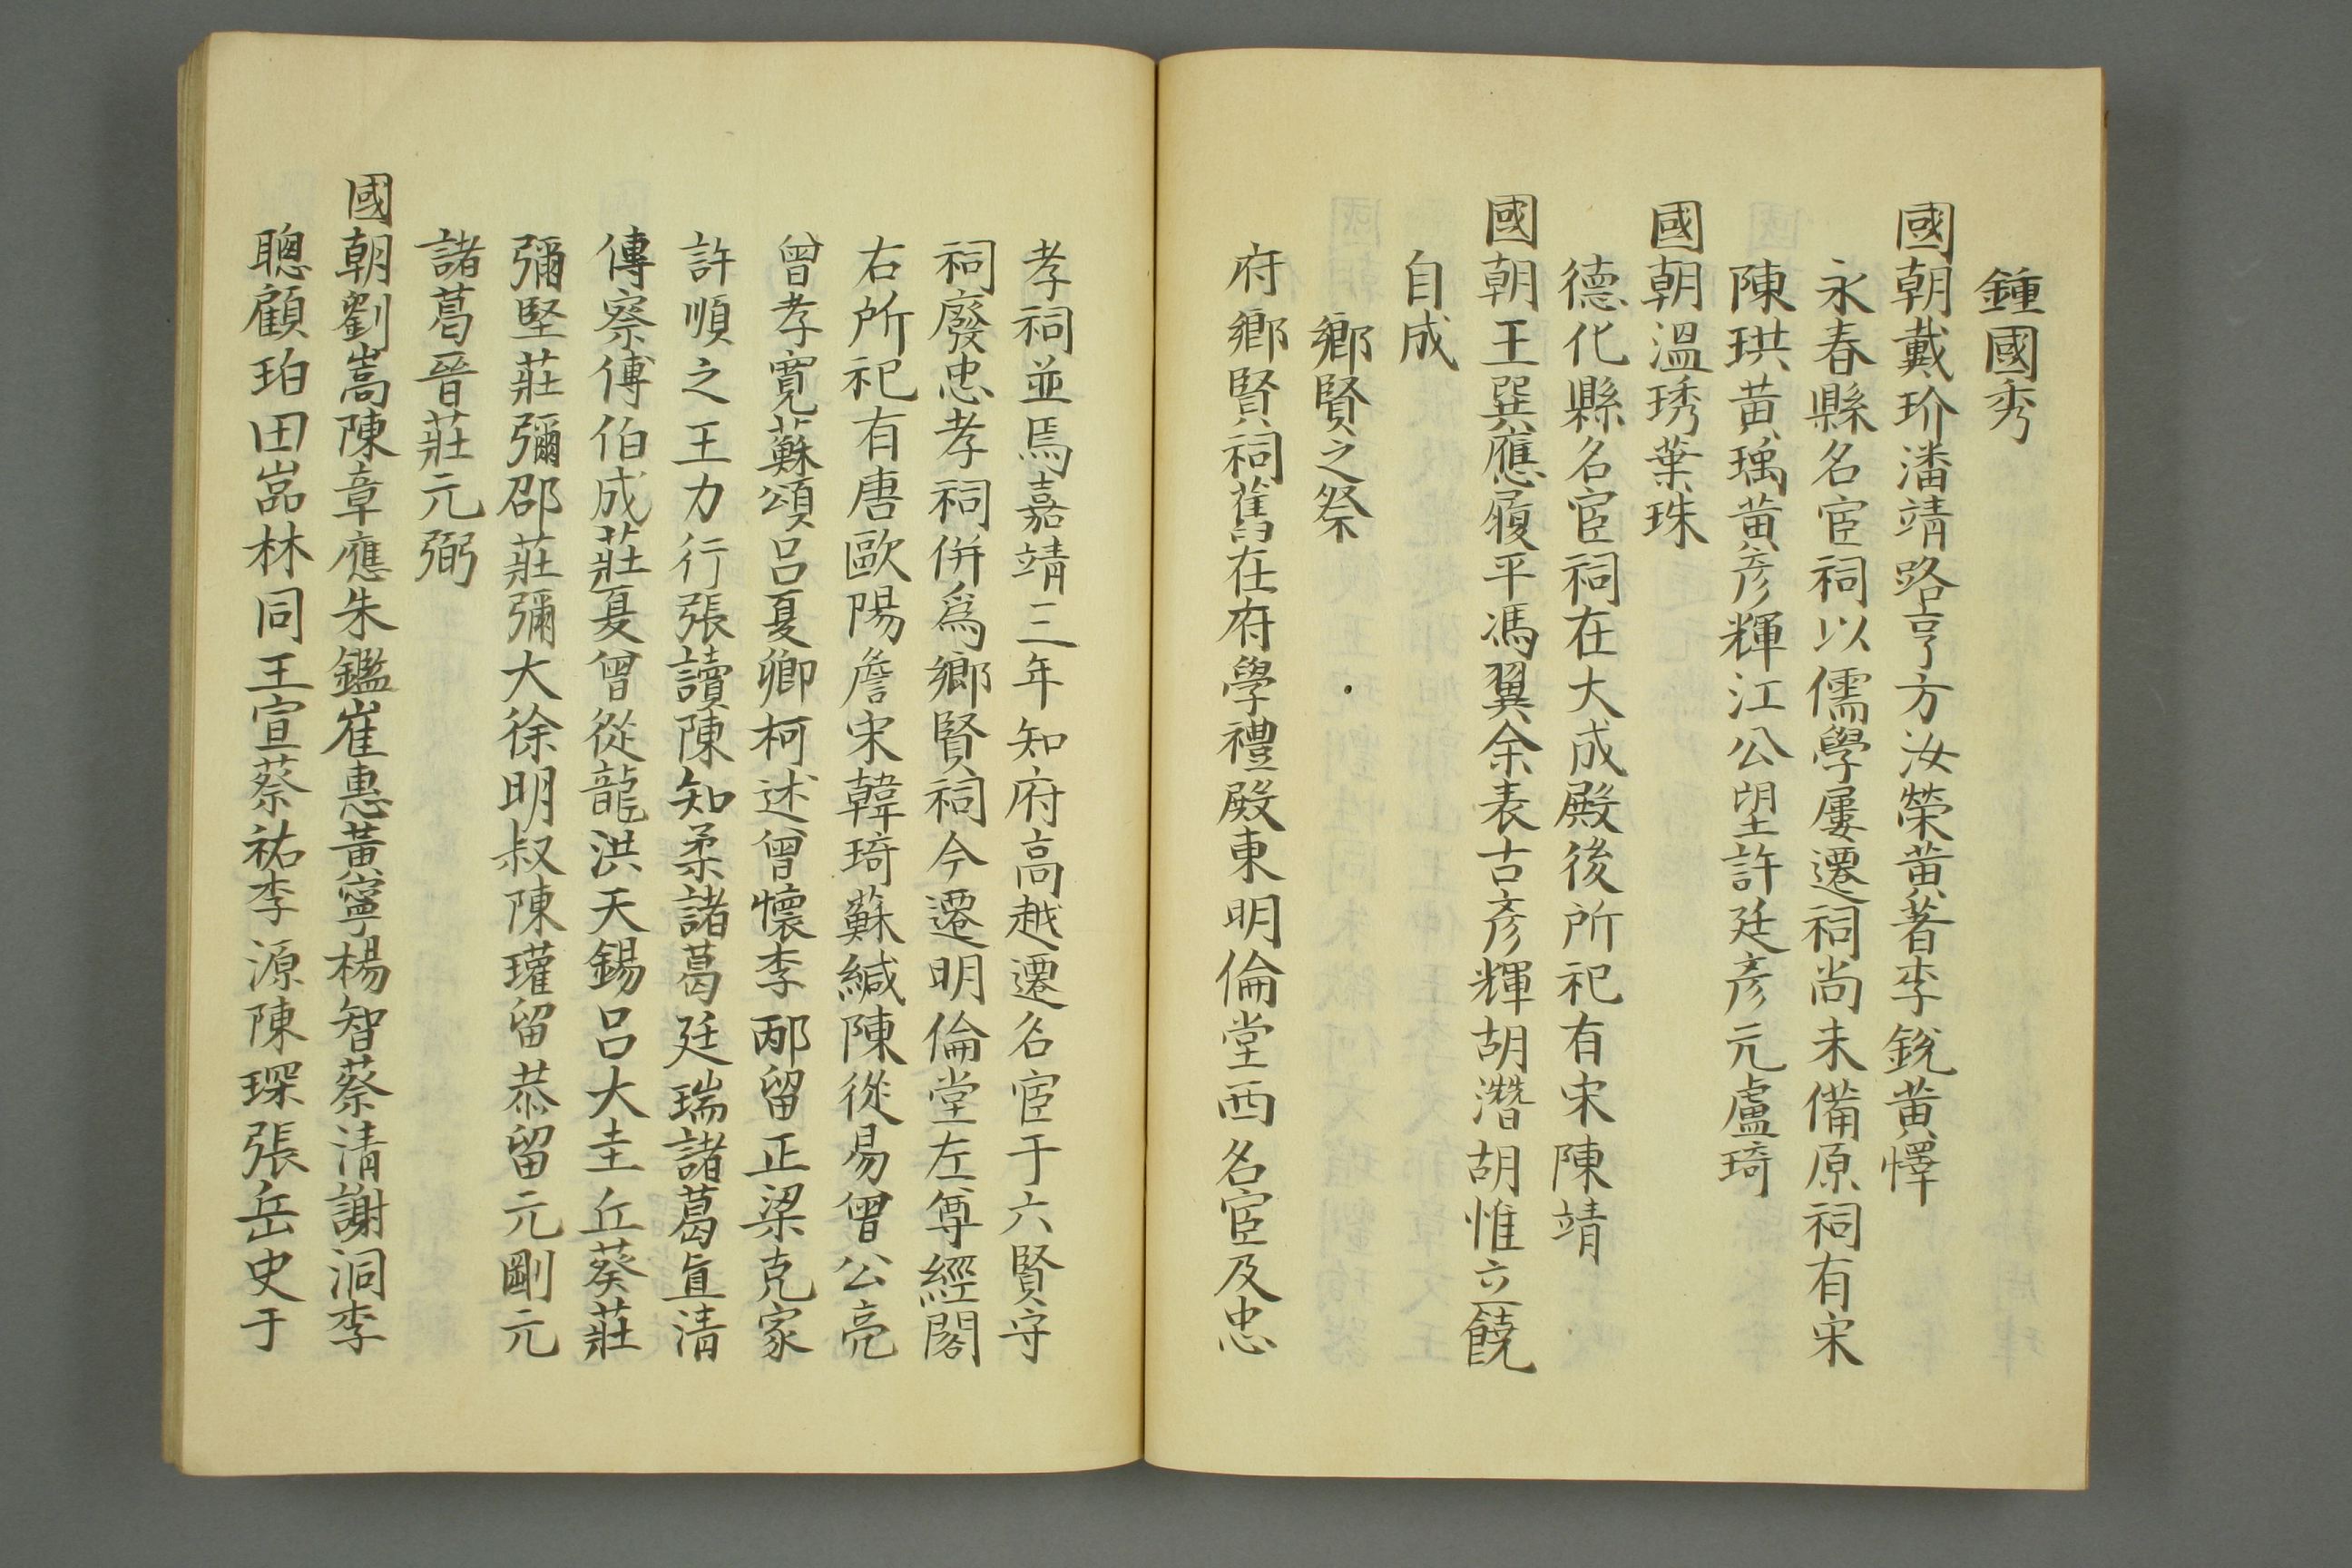 鍾國秀
國朝戴玠潘靖路亨方汝榮黃著李銳黃懌
永春縣名宦祠以儒學屢遷祠尚未備原祠有宋
陳珙黃瑀黃彥輝江公望許廷彥元盧琦
國朝溫琇葉珠
德化縣名宦祠在大成殿後所祀有宋陳靖
國朝王巽應履平馮翼余表古彥輝胡濳胡惟立饒
自成
鄉賢之祭
府鄉賢祠舊在府學禮殿東明倫堂西名宦及忠
孝祠並焉嘉靖三年知府高越遷名宦于六賢守
祠廢忠孝祠併爲鄉賢祠今遷明倫堂左尊經閣
右所祀有唐歐陽詹宋韓琦蘇緘陳從易曾公亮
曾孝寬蘇頌呂夏卿柯述曾懷李邴留正梁克家
許順之王力行張讀陳知柔諸葛廷瑞諸葛直清
傳察傅伯成莊夏曾從龍洪天錫呂大圭丘葵莊
彌堅莊彌邵莊彌大徐明叔陳瓘留恭留元剛元
諸葛晉莊元弼
國朝劉嵩陳章應朱鑑崔惠黃寧楊智蔡清謝洞李
聰顧珀田嵓林同王宣蔡祐李源陳琛張岳史于